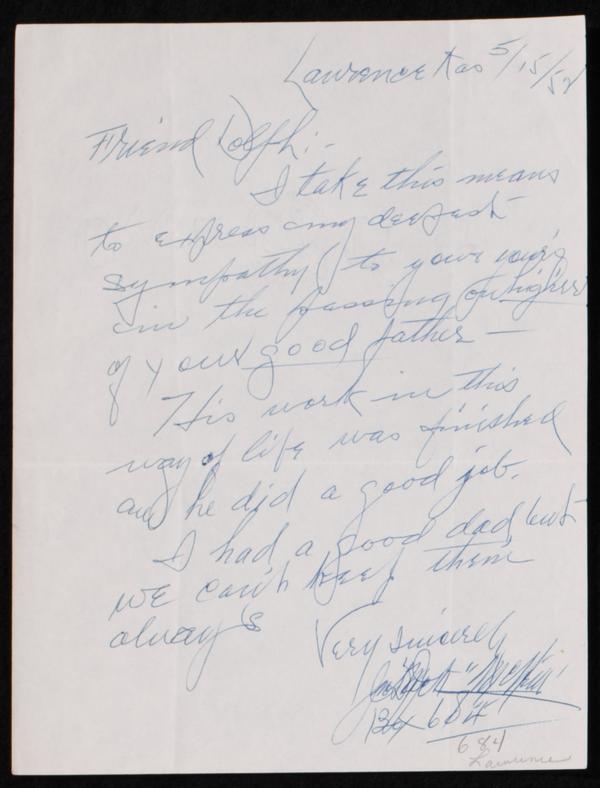 Lawrence Kas 5/15/52
Friend Dolph:-
I take this means
to express my deepest
sympathy to you
in the passing on higher
of your good father —
His work in this
way of life was finished
and he did a good job.
I had a good dad but
we can't keep them
always
Very Sincerely
Box 684
684
Lawrence